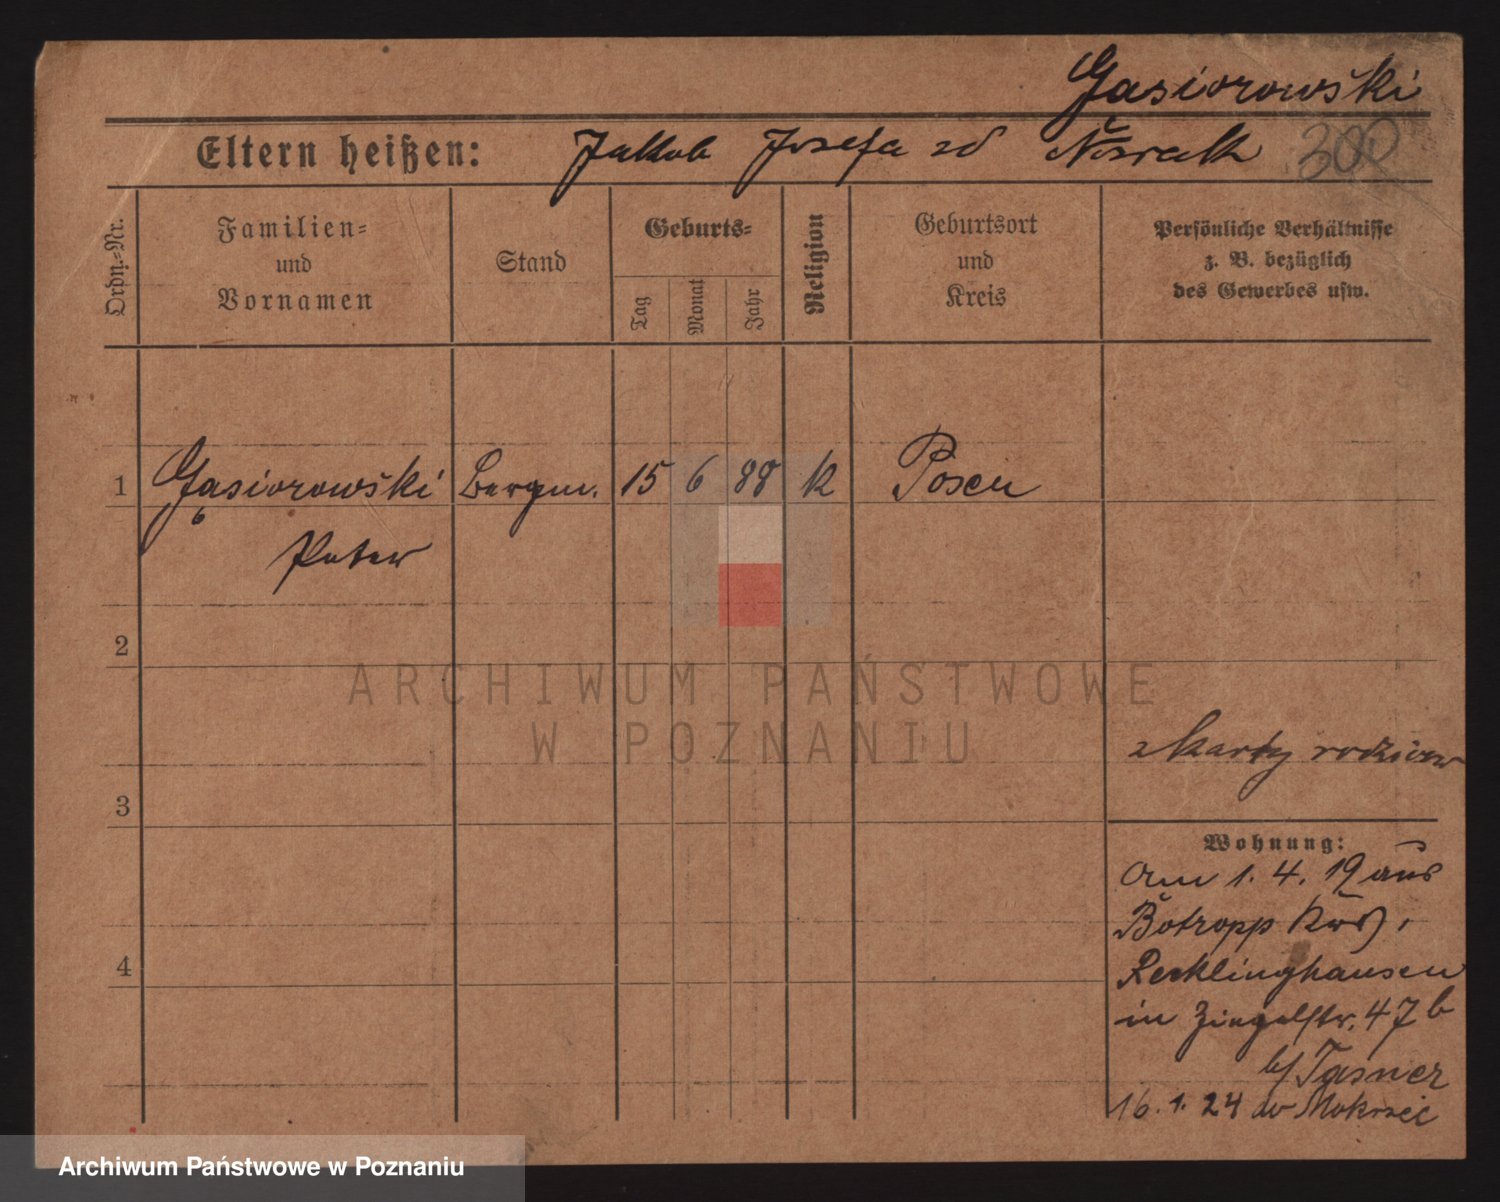 Gasiorowski
Eltern heißen: Jakob Josefa zd Nowak 300
Ordn.-Nr.
Familien-
und
Vornamen
Stand
Geburts-
Tag
Monat
Jahr
Religion
Geburtsort
und
Kreis
Persönliche Verhältnisse
z. B. bezüglich
des Gewerbes usw.
1 Gąsiorowski Bergm. 15 6 88 K Posen
Peter
2
ARCHIWUM PAŃSTWOWE
W POZNANIU
z karty rodziców
3
Wohnung:
Am 1. 4. 19 aus
Botropp Krs.
Recklinghausen
4
in Ziegelstr. 47b
b/ Tasner
16. 1. 24 do Mokrzec
Archiwum Państwowe w Poznaniu